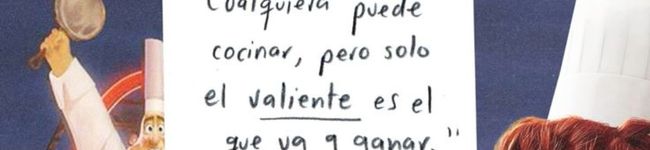 Cualquiera puede
cocinar, pero solo
el valiente es el
que va a ganar."